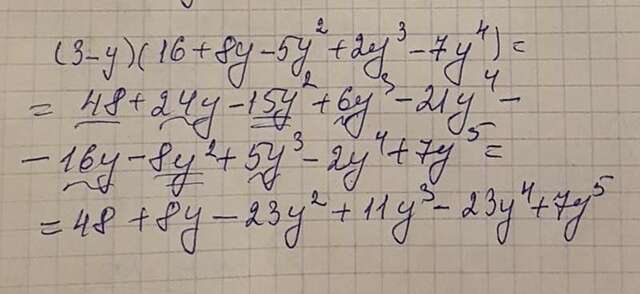 (3-y)(16+8y-5y²+2y³-7y⁴)=
= 48+24y-15y²+6y³-21y⁴-
-16y-8y²+5y³-2y⁴+7y⁵=
=48+8y-23y²+11y³-23y⁴+7y⁵